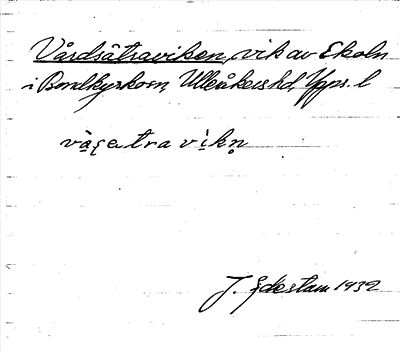 Vårdsätraviken, vik av Ekoln
i Bondkyrkosn, Ulleråkers hd, Upps. l
våʂetra vikn̥
J. Edestam 1932